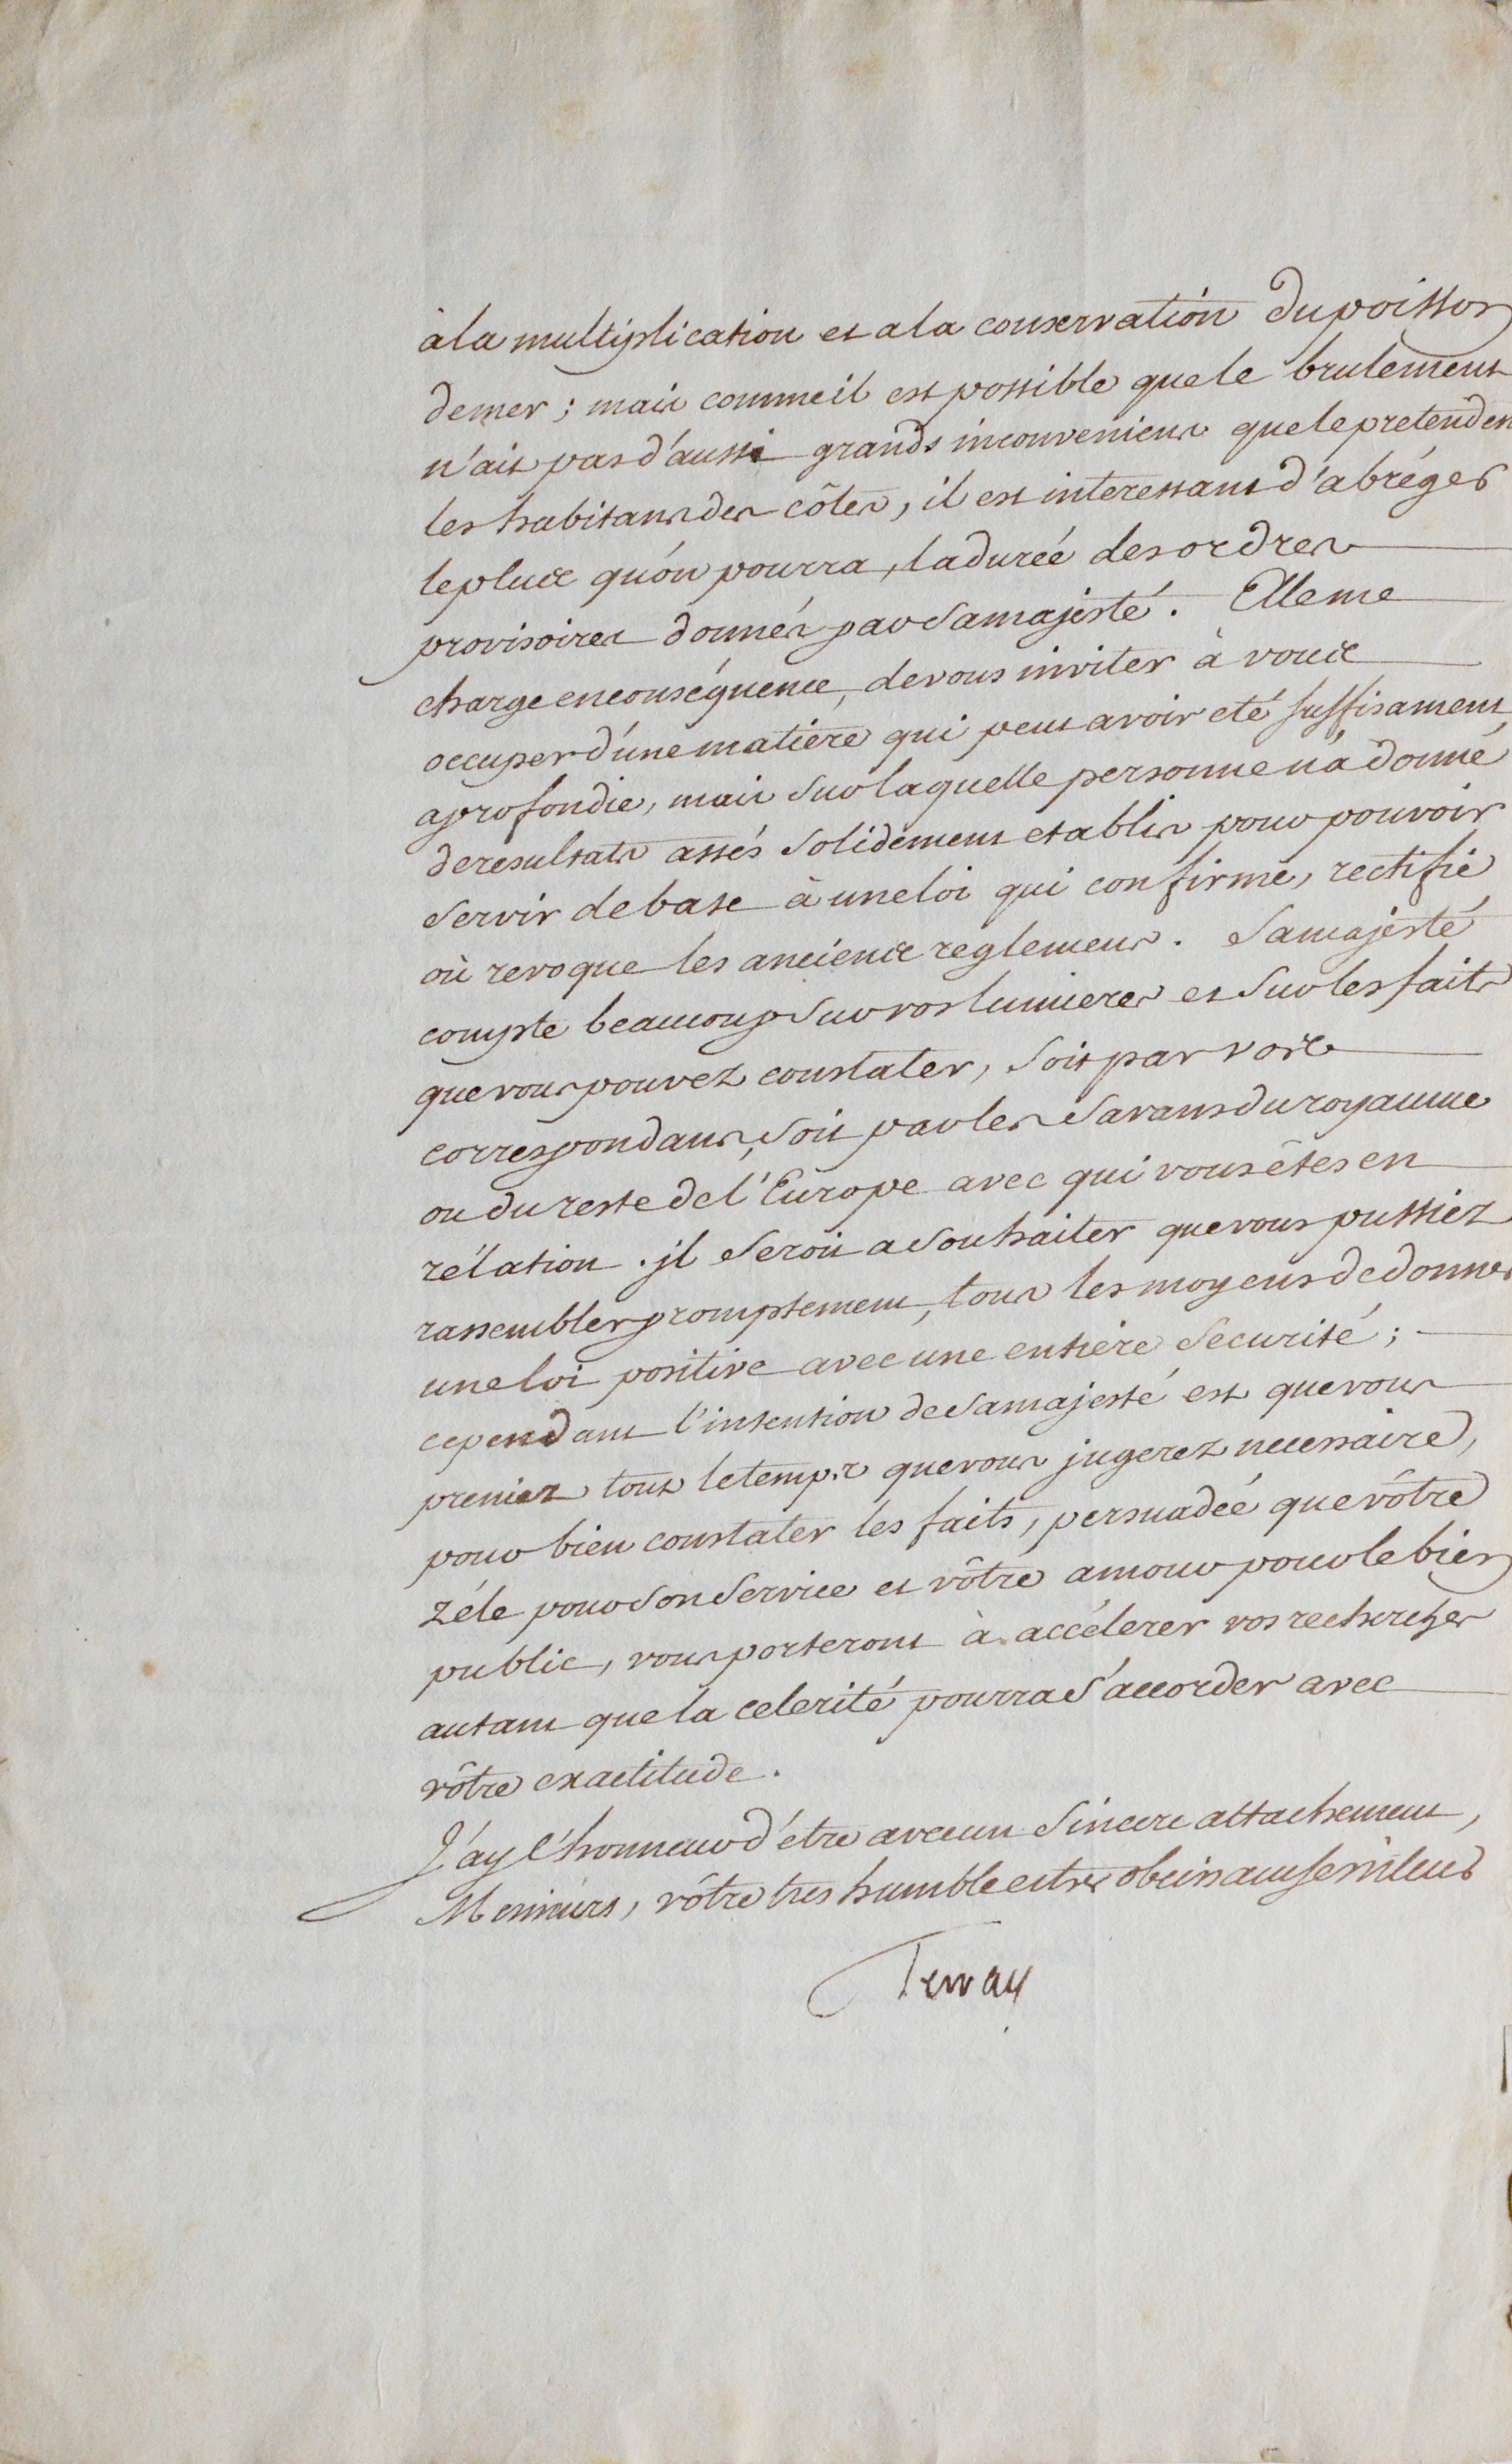 à la multiplication et a la conservation du poisson
de mer ; mais comme il est possible que le brulement
n'ait pas d'aussi grands inconveniens que le pretenden
les habitans des côtes, il est interessant d'abréger
le plus qu'on pourra, la durée des ordres
provisoires donnés par Sa majesté. Elle me
charge en conséquence, de vous inviter à vous
occuper d'une matiere qui peut avoir eté suffisament
aprofondie, mais sur laquelle personne n'a donné
de resultats assés solidement etablis pour pouvoir
servir de base à une loi qui confirme, rectifie
où revoque les anciens reglemens. Sa majesté
compte beaucoup sur vos lumieres et sur les faits
que vous pouvez constater, soit par vos
correspondans, soit par les savans du royaume
ou du reste de l'Europe avec qui vous êtes en
rélation. jl seroit a souhaiter que vous pussiez
rassembler promptement, tous les moyens de donner
une loi positive avec une entiere securité ;
cependant l'intention de Sa majesté est que vous
preniez tout le temps que vous jugerez necessaire,
pour bien constater les faits, persuadée que vôtre
zéle pour son service et vôtre amour pour le bien
public, vous porteront à accélerer vos recherches
autant que la celerité pourra s'accorder avec
vôtre exactitude.
J'ay l'honneur d'etre avec un sincere attachement,
Messieurs, vôtre tres humble et tres obeissant serviteur
Terray